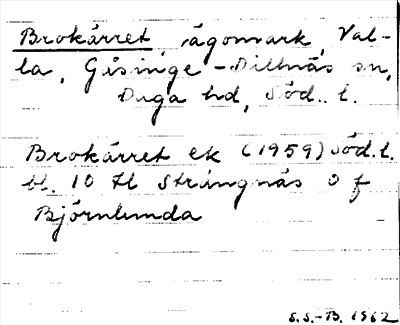 Brokärret, ägomark, Val-
la, Gåsinge-Dillnäs sn,
Daga hd, Söd. l.
Brokärret ek (1959) Söd. l.
bl. 10 H Strängnäs O f
Björnlunda
S.S.-B. 1962